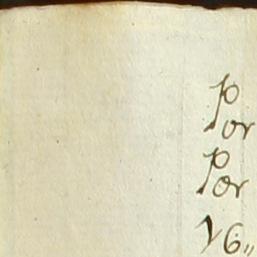 Por
Por
y6,,